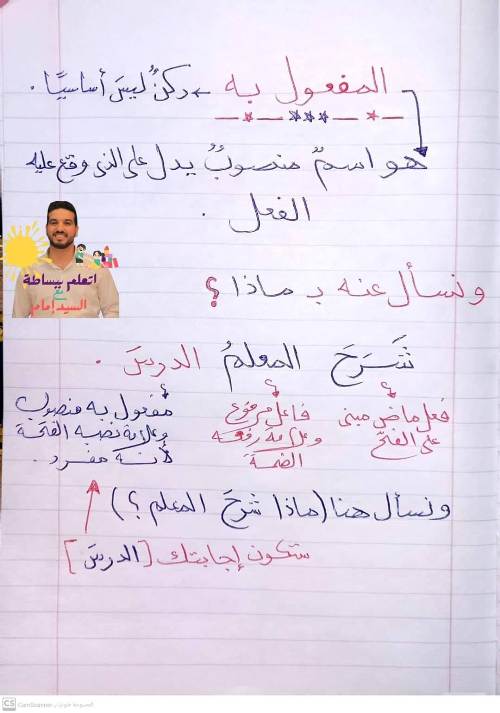 المفعول به ← ركنٌ ليسَ أساسيًا .
هو اسمٌ منصوبٌ يدل على الذى وقع عليه
الفعل .
اتعلم ببساطة
مع
السيد إمام
ونسأل عنه بـ ماذا ؟
شَرَحَ المعلمُ الدرسَ .
فعل ماضٍ مبنى فاعل مرفوع مفعول به منصوب
على الفتح وعلامة رفعه وعلامة نصبه الفتحة
الضمة لأنه مفرد .
ونسأل هنا (ماذا شرحَ المعلم ؟)
ستكون إجابتك [الدرسَ]
CS CamScanner